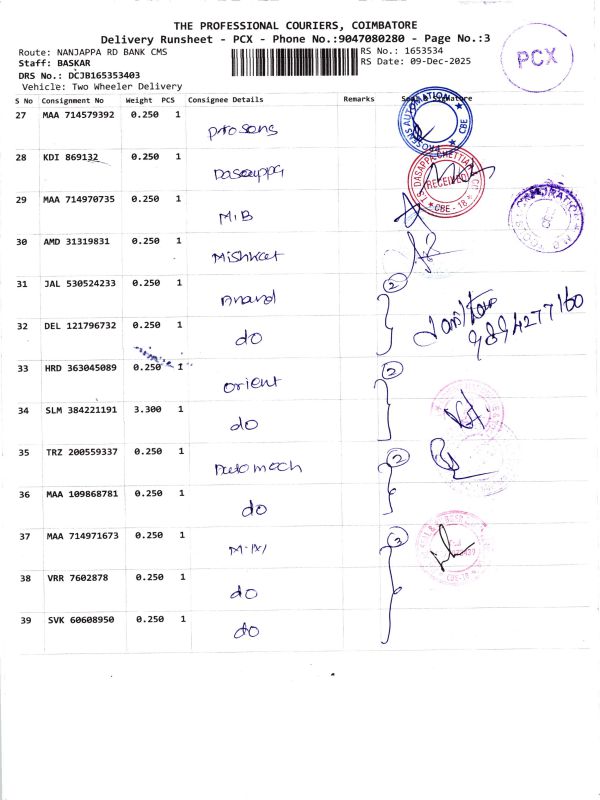 THE PROFESSIONAL COURIERS, COIMBATORE
Delivery Runsheet - PCX - Phone No.:9047080280 - Page No.:3
Route: NANJAPPA RD BANK CMS
RS No.: 1653534
Staff: BASKAR
RS Date: 09-Dec-2025
DRS No.: DCJB165353403
Vehicle: Two Wheeler Delivery
PCX
S No Consignment No Weight PCS Consignee Details Remarks
27 MAA 714579392 0.250 1 Prosens
PROSENS AUTOMATION CBE
28 KDI 869132 0.250 1 Dasappa
RECEIVED
CBE - 18
29 MAA 714970735 0.250 1 M.B
30 AMD 31319831 0.250 1 Mishkat
31 JAL 530524233 0.250 1 Anand 2
32 DEL 121796732 0.250 1 do
33 HRD 363045089 0.250 1 orient 2
34 SLM 384221191 3.300 1 do
35 TRZ 200559337 0.250 1 Automech 2
36 MAA 109868781 0.250 1 do
37 MAA 714971673 0.250 1 3
38 VRR 7602878 0.250 1 do
39 SVK 60608950 0.250 1 do